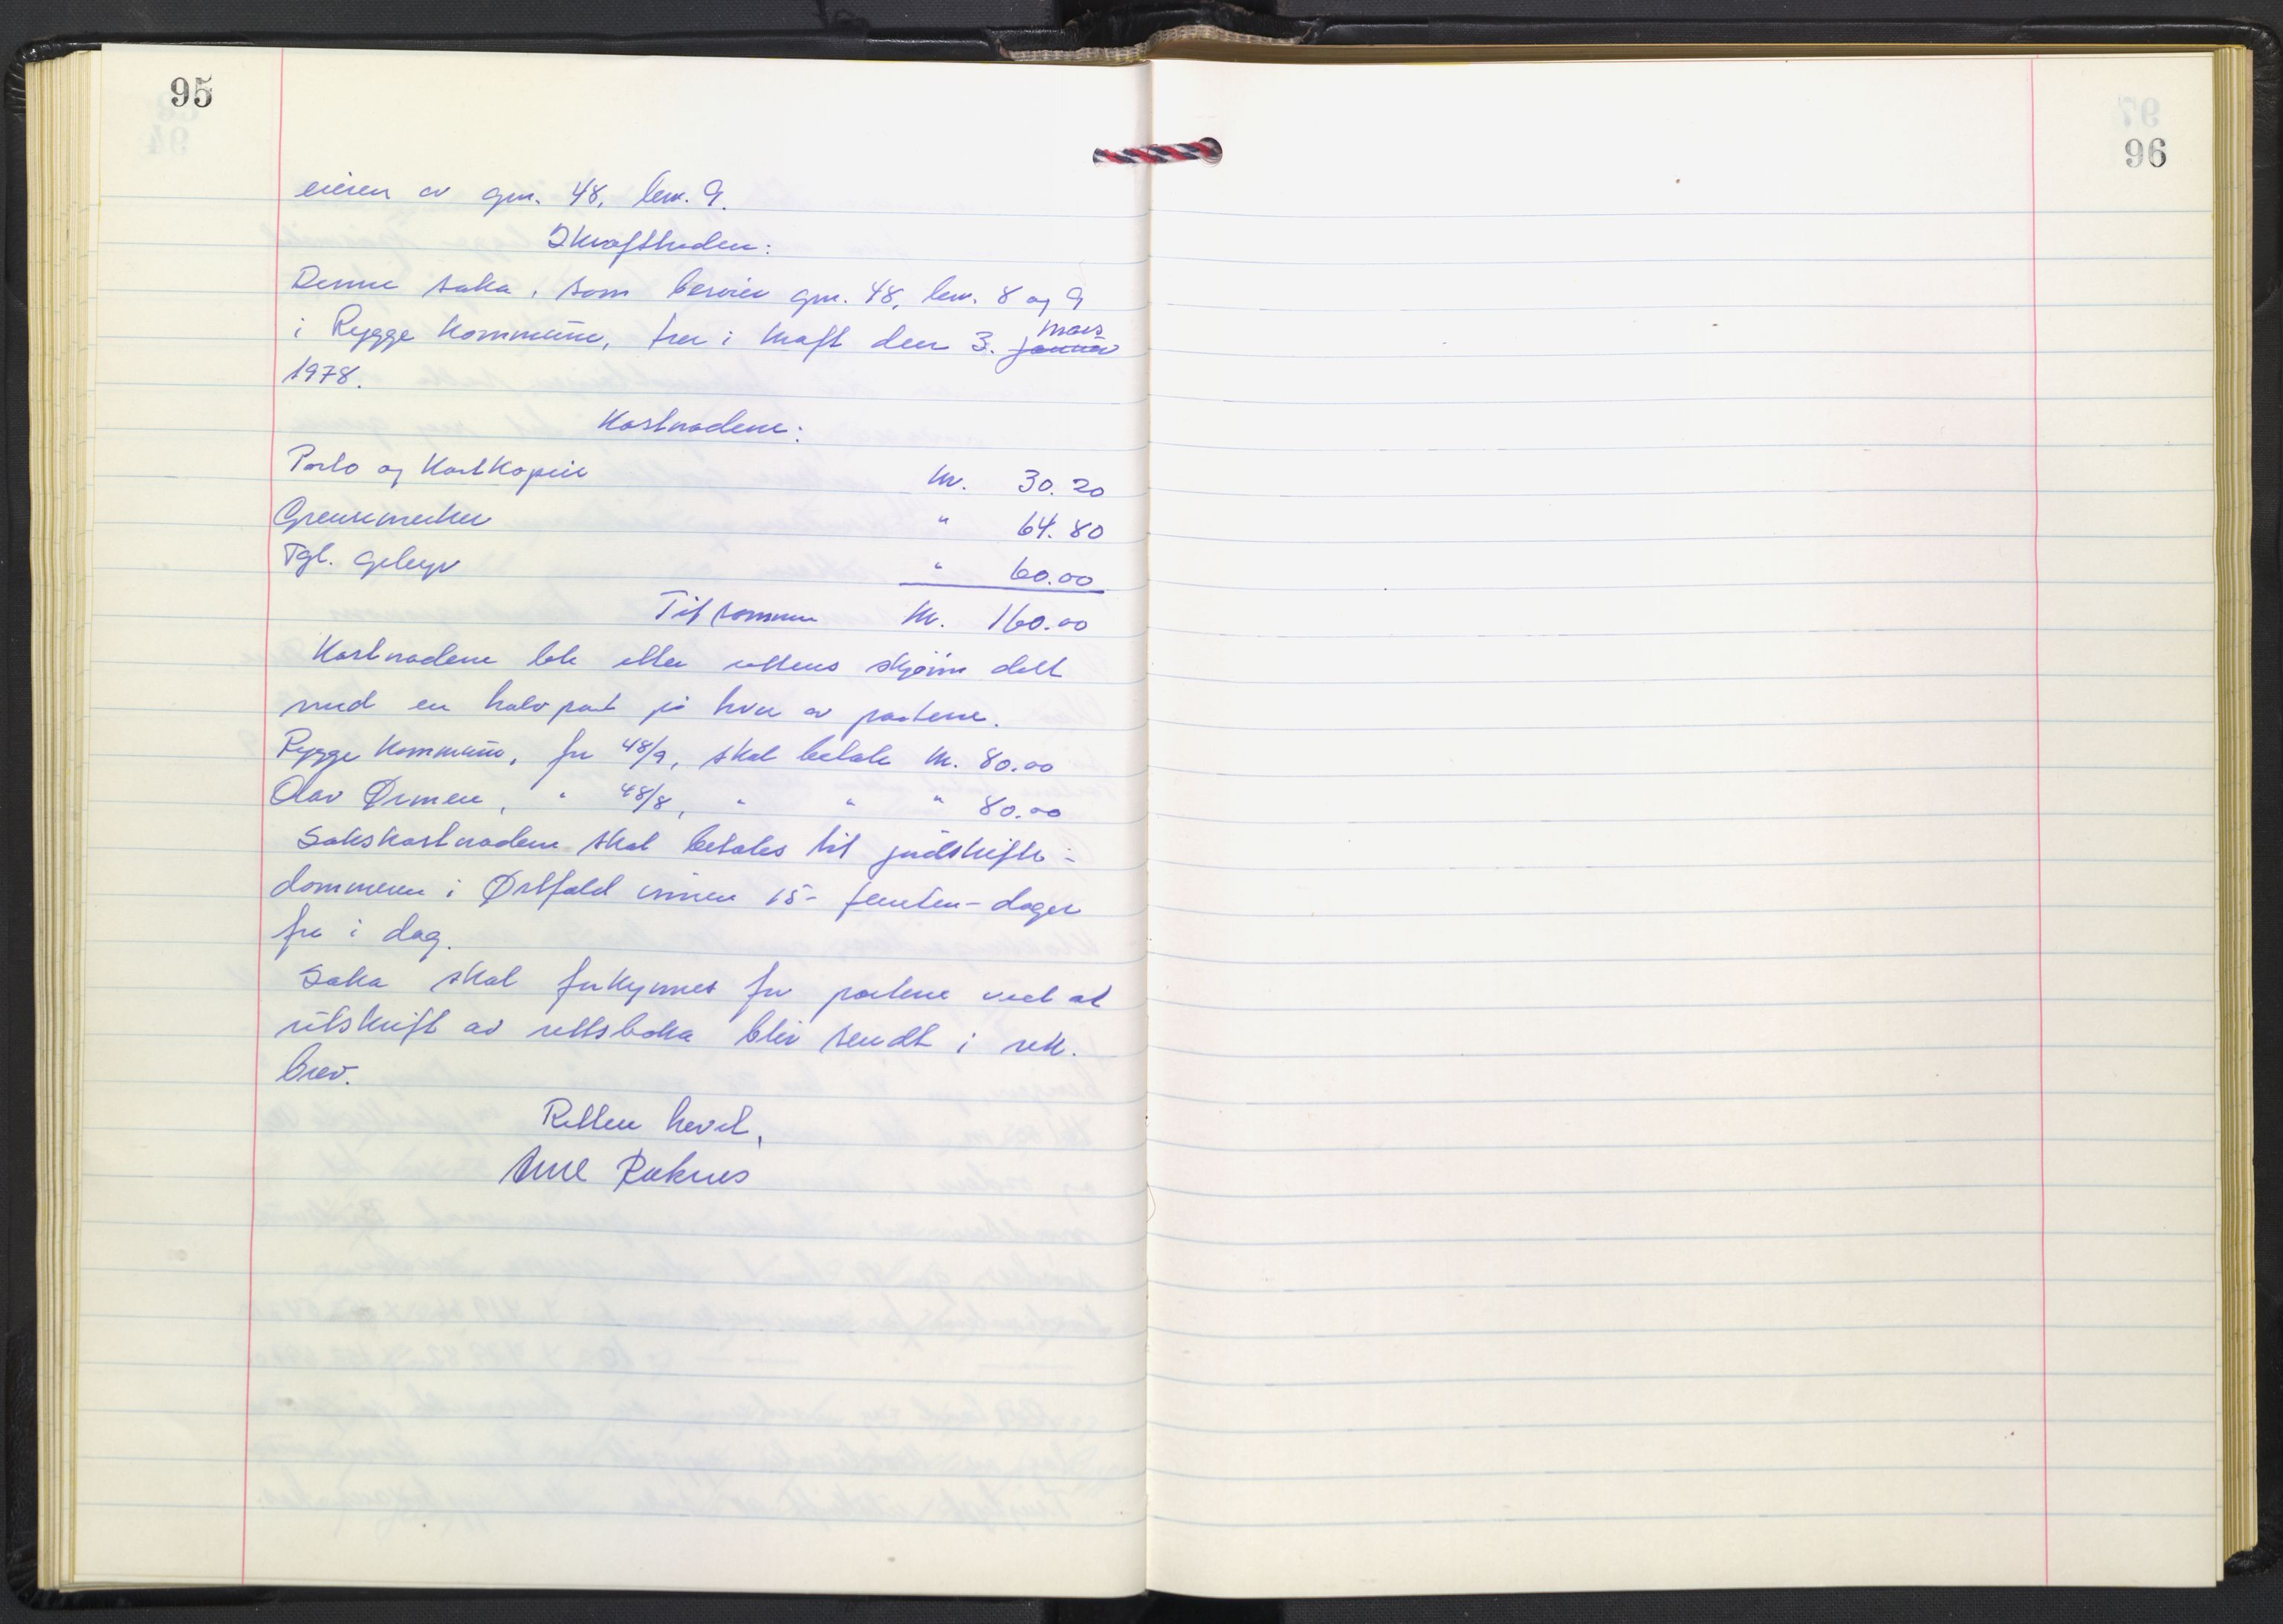 95
eieren av gnr. 48, bnr. 9.
Ikrafttreden:
Denne saka, som berører gnr. 48, bnr. 8 og 9
i Rygge kommune, trer i kraft den 3. januar mars
1978.
Kostnadene:
Porto og kartkopier kr. 30.20
Grensemerker " 64.80
Tgl. gebyr " 60.00
Tilsammen kr. 160.00
Kostnadene ble etter rettens skjønn delt
med en halvpart på hver av partene.
Rygge kommune, for 48/9, skal betale kr. 80.00
Olav Ørmen, " 48/8, " " " 80.00
Sakskostnadene skal betales til jordskifte-
dommeren i Østfold innen 15- femten- dager
fra i dag.
Saka skal forkynnes for partene ved at
utskrift av rettsboka blir sendt i rek.
brev.
Retten hevet,
Arne Raknes
96